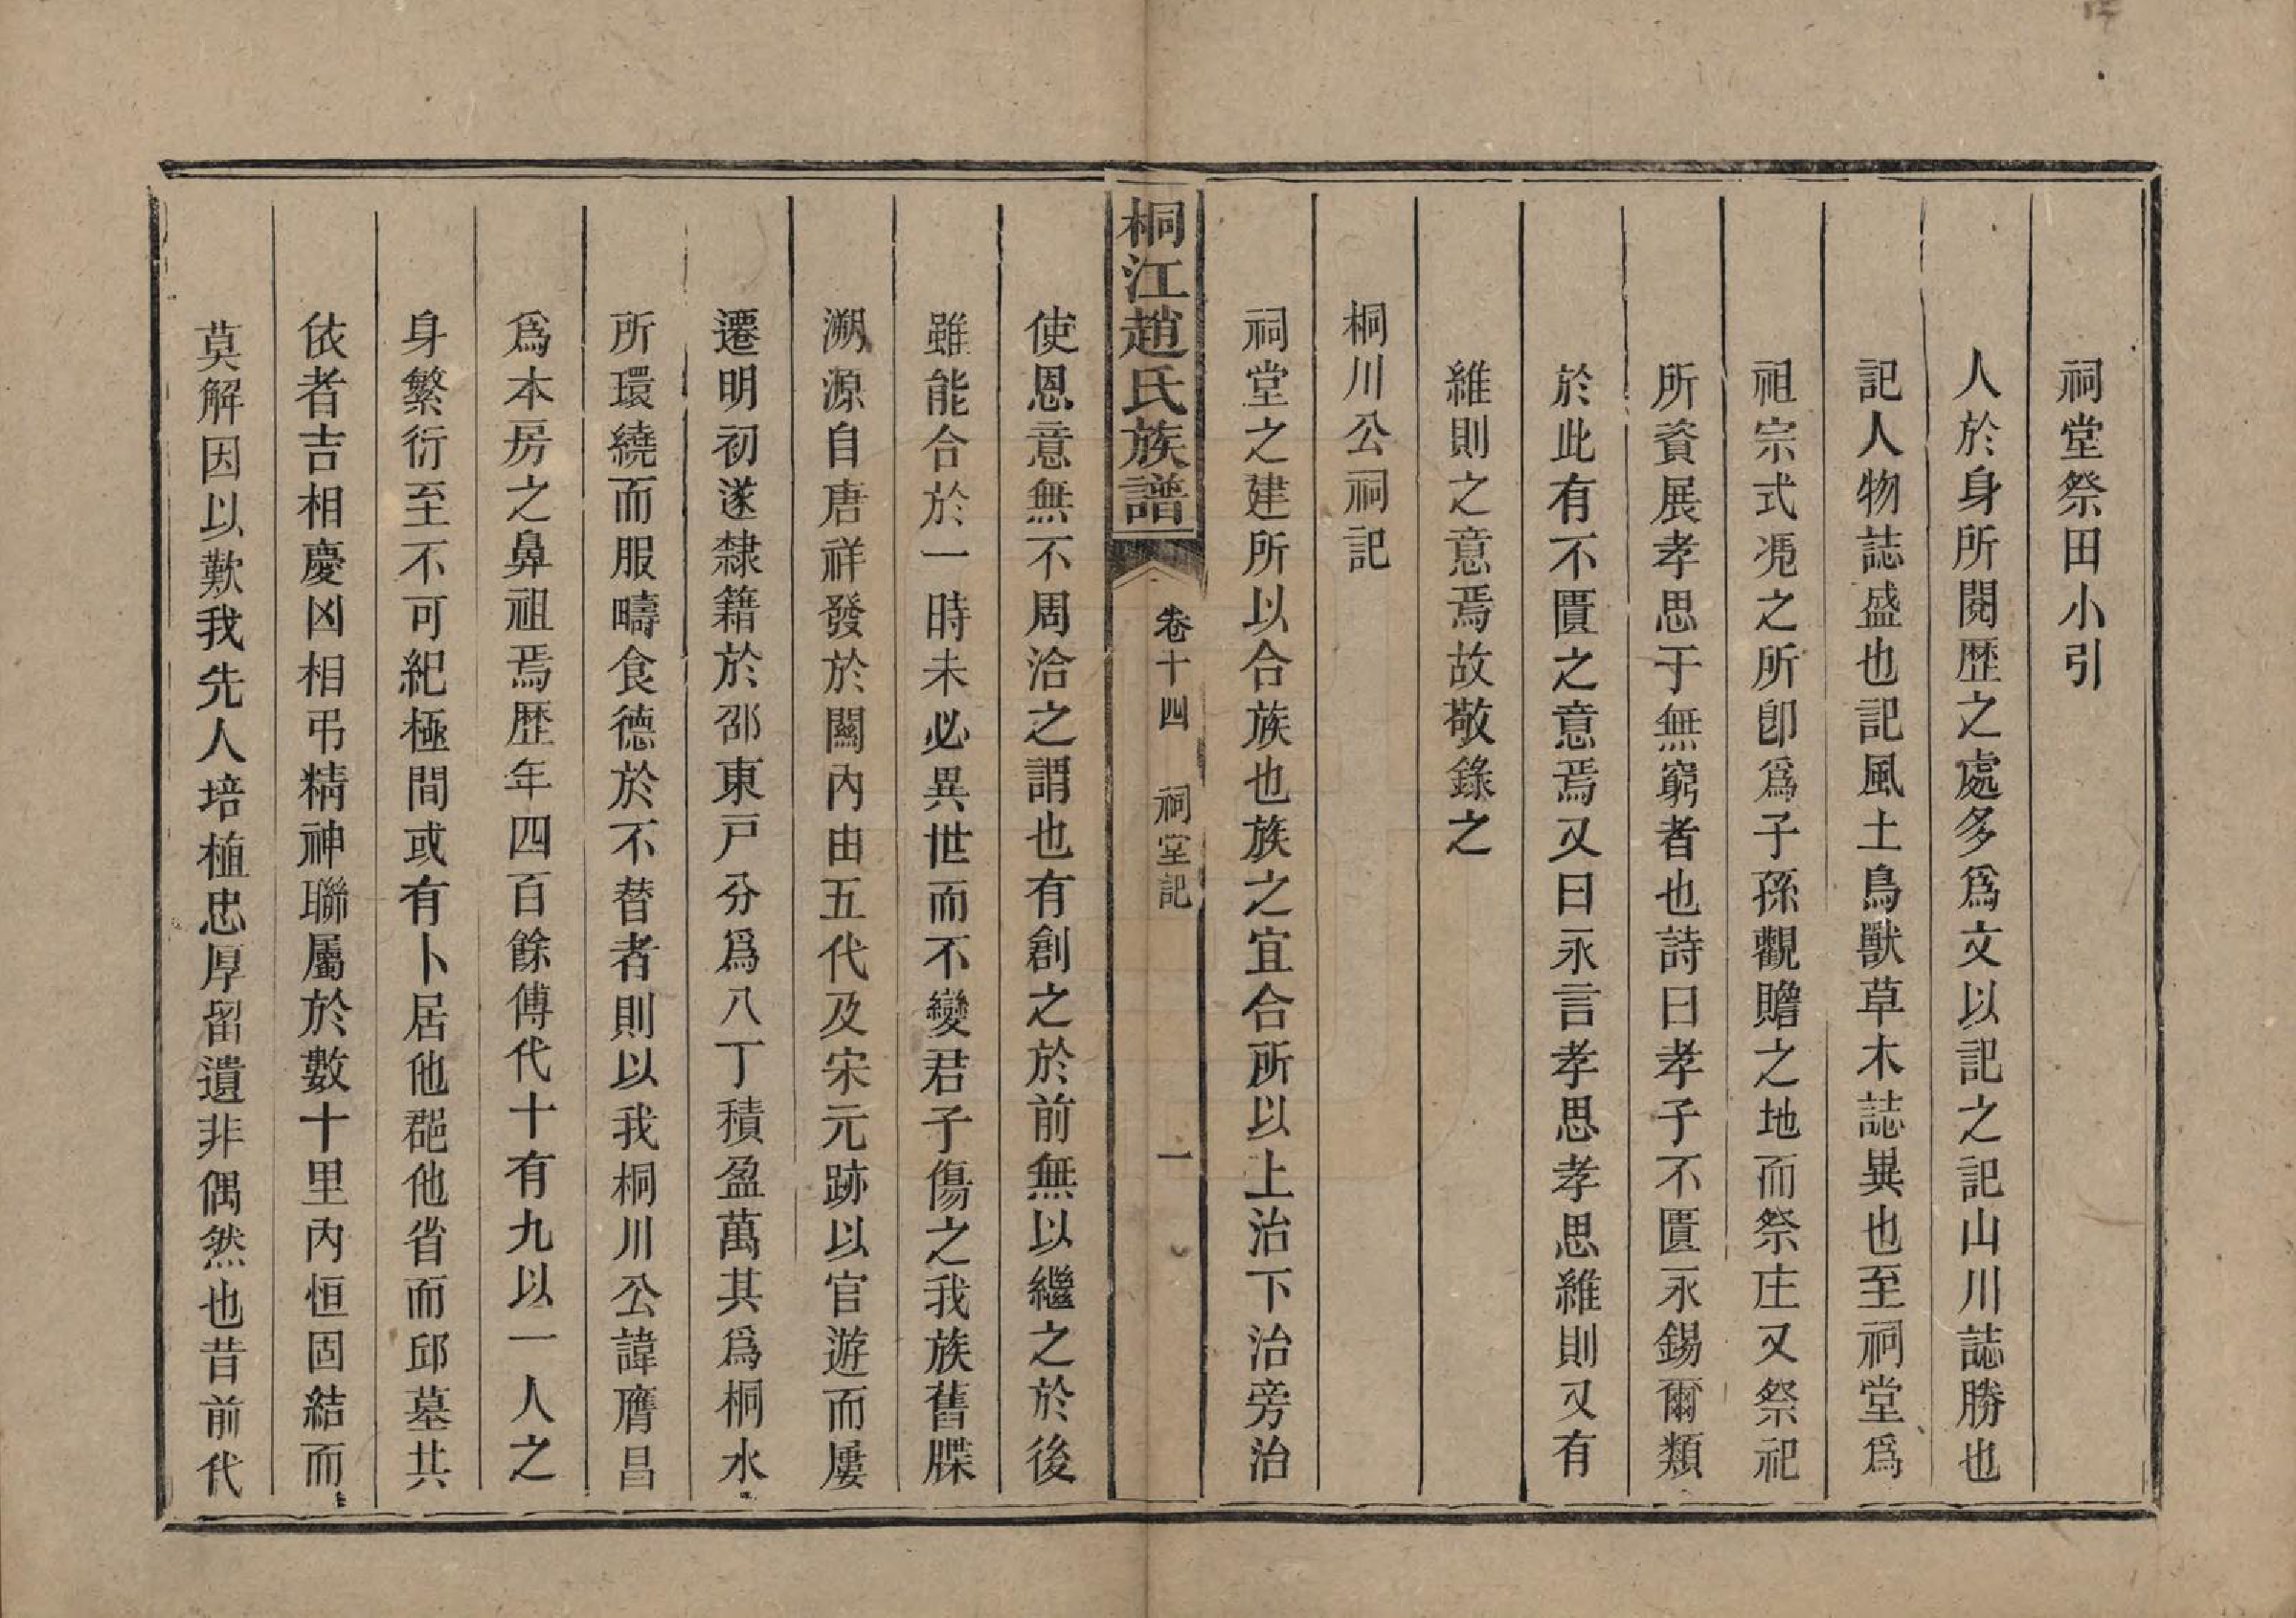 祠堂祭田小引
人於身所閱歷之處多爲文以記之記山川誌勝也
記人物誌盛也記風土鳥獸草木誌異也至祠堂爲
祖宗式凴之所卽爲子孫觀瞻之地而祭庄又祭祀
所資展孝思于無窮者也詩曰孝子不匱永錫爾類
於此有不匱之意焉又曰永言孝思孝思維則又有
維則之意焉故敬錄之
桐川公祠記
祠堂之建所以合族也族之宜合所以上治下治旁治
桐江趙氏族譜 卷十四 祠堂記 一
使恩意無不周洽之謂也有創之於前無以繼之於後
雖能合於一時未必異世而不變君子傷之我族舊牒
溯源自唐祥發於關內由五代及宋元跡以官遊而屢
遷明初遂隸籍於邵東戸分爲八丁積盈萬其爲桐水
所環繞而服疇食德於不替者則以我桐川公諱膺昌
爲本房之鼻祖焉歷年四百餘傅代十有九以一人之
身繁衍至不可紀極間或有卜居他郡他省而邱墓共
依者吉相慶凶相弔精神聯屬於數十里內恒固結而
莫解因以歎我先人培植忠厚留遺非偶然也昔前代